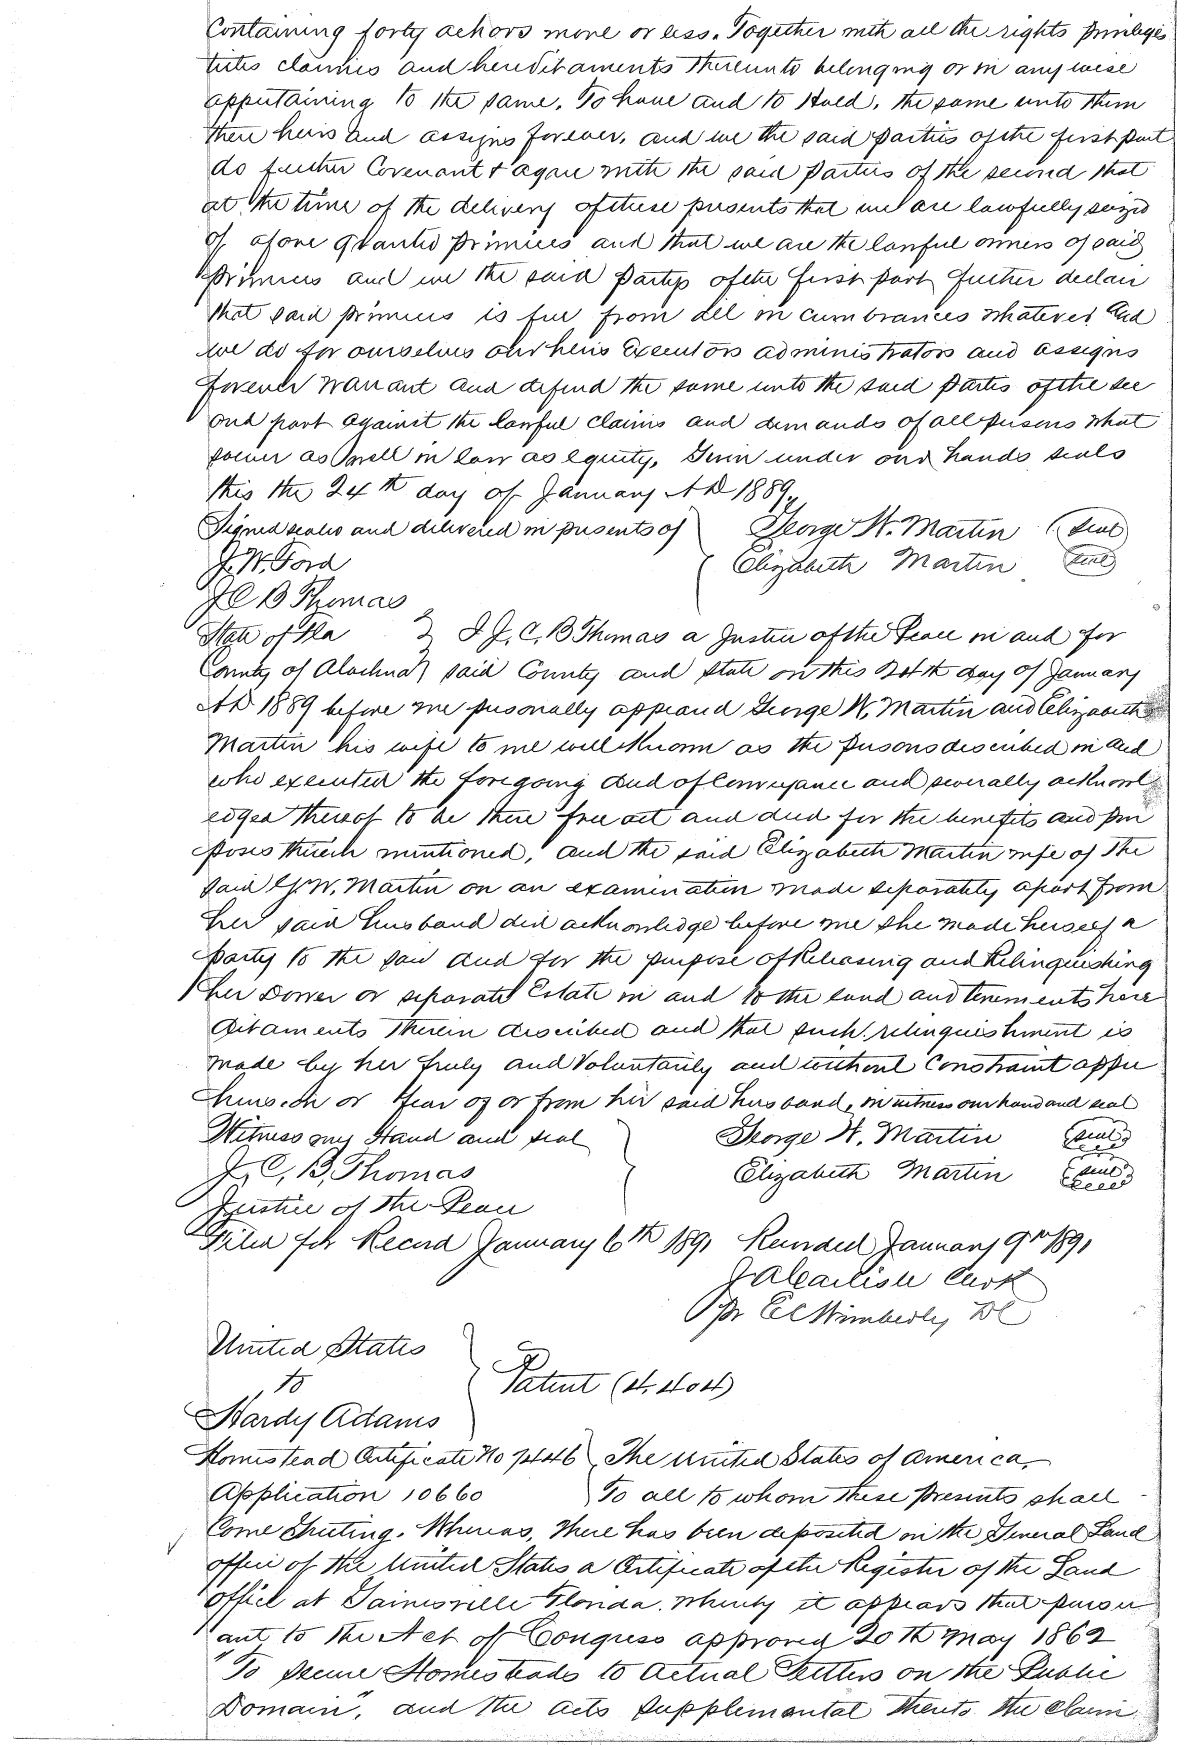 Containing forty achors more or less. Together with all the rights privileges
titles claimes and hereditaments thereunto belonging or in any wise
appertaining to the same. To have and to Hold, the same unto them
there heirs and assigns forever, and we the said parties of the first part
do further Covenant & agree with the said parties of the second that
at the time of the delivery of these presents that we are lawfully seized
of afore granted primices and that we are the lawful owners of said
primices and we the said partys of the first part further declair
that said primices is free from all in cumbrances whatever and
we do for ourselves our heirs Executors administrators and assigns
forever Warrant and defend the same unto the said parties of the sec
ond part against the lawful claims and demands of all persons what
soever as well in law as equity. Given under our hands seals
this the 24th day of January A D 1889.
Signed sealed and delivered in presents of George W. Martin (seal)
J. W. Ford Elizabeth Martin (seal)
J C B Thomas
State of Fla } I J. C. B Thomas a Justice of the Peace in and for
County of Alachua } said County and State on this 24th day of January
A D 1889 before me personally appeared George W. Martin and Elizabeth
Martin his wife to me well known as the persons described in and
who executed the foregoing deed of Conveyance and severally acknowl
edged thereof to be there free act and deed for the benefits and pur
poses therein mentioned, and the said Elizabeth Martin wife of the
said G. W. Martin on an examination made separately apart from
her said husband did acknowledge before me she made herself a
party to the said deed for the purpose of Releasing and Relinquishing
her Dower or separate Estate in and to the land and tenements here
ditaments therein described and that such relinquishment is
made by her freely and Voluntarily and without Constraint appre
hension or fear of or from her said husband, in witness our hand and seal
Witness my Hand and seal } George W. Martin (seal)
J. C. B. Thomas } Elizabeth Martin (seal)
Justice of the Peace
Filed for Record January 6th 1891 Recorded January 9th 1891
J A Carlisle Clerk
Pr E C Wimberly DC
United States
to } Patent (4.404)
Hardy Adams
Homestead Certificate No 7446 } The United States of America,
Application 10660 } To all to whom these presents shall
Come Greeting. Whereas, there has been deposited in the General Land
office of the United States a Certificate of the Register of the Land
office at Gainesville Florida. whereby it appears that pursu
ant to the Act of Congress approved 20th May 1862
"To Secure Homesteads to Actual Settlers on the Public
Domain", and the acts supplemental thereto the claim